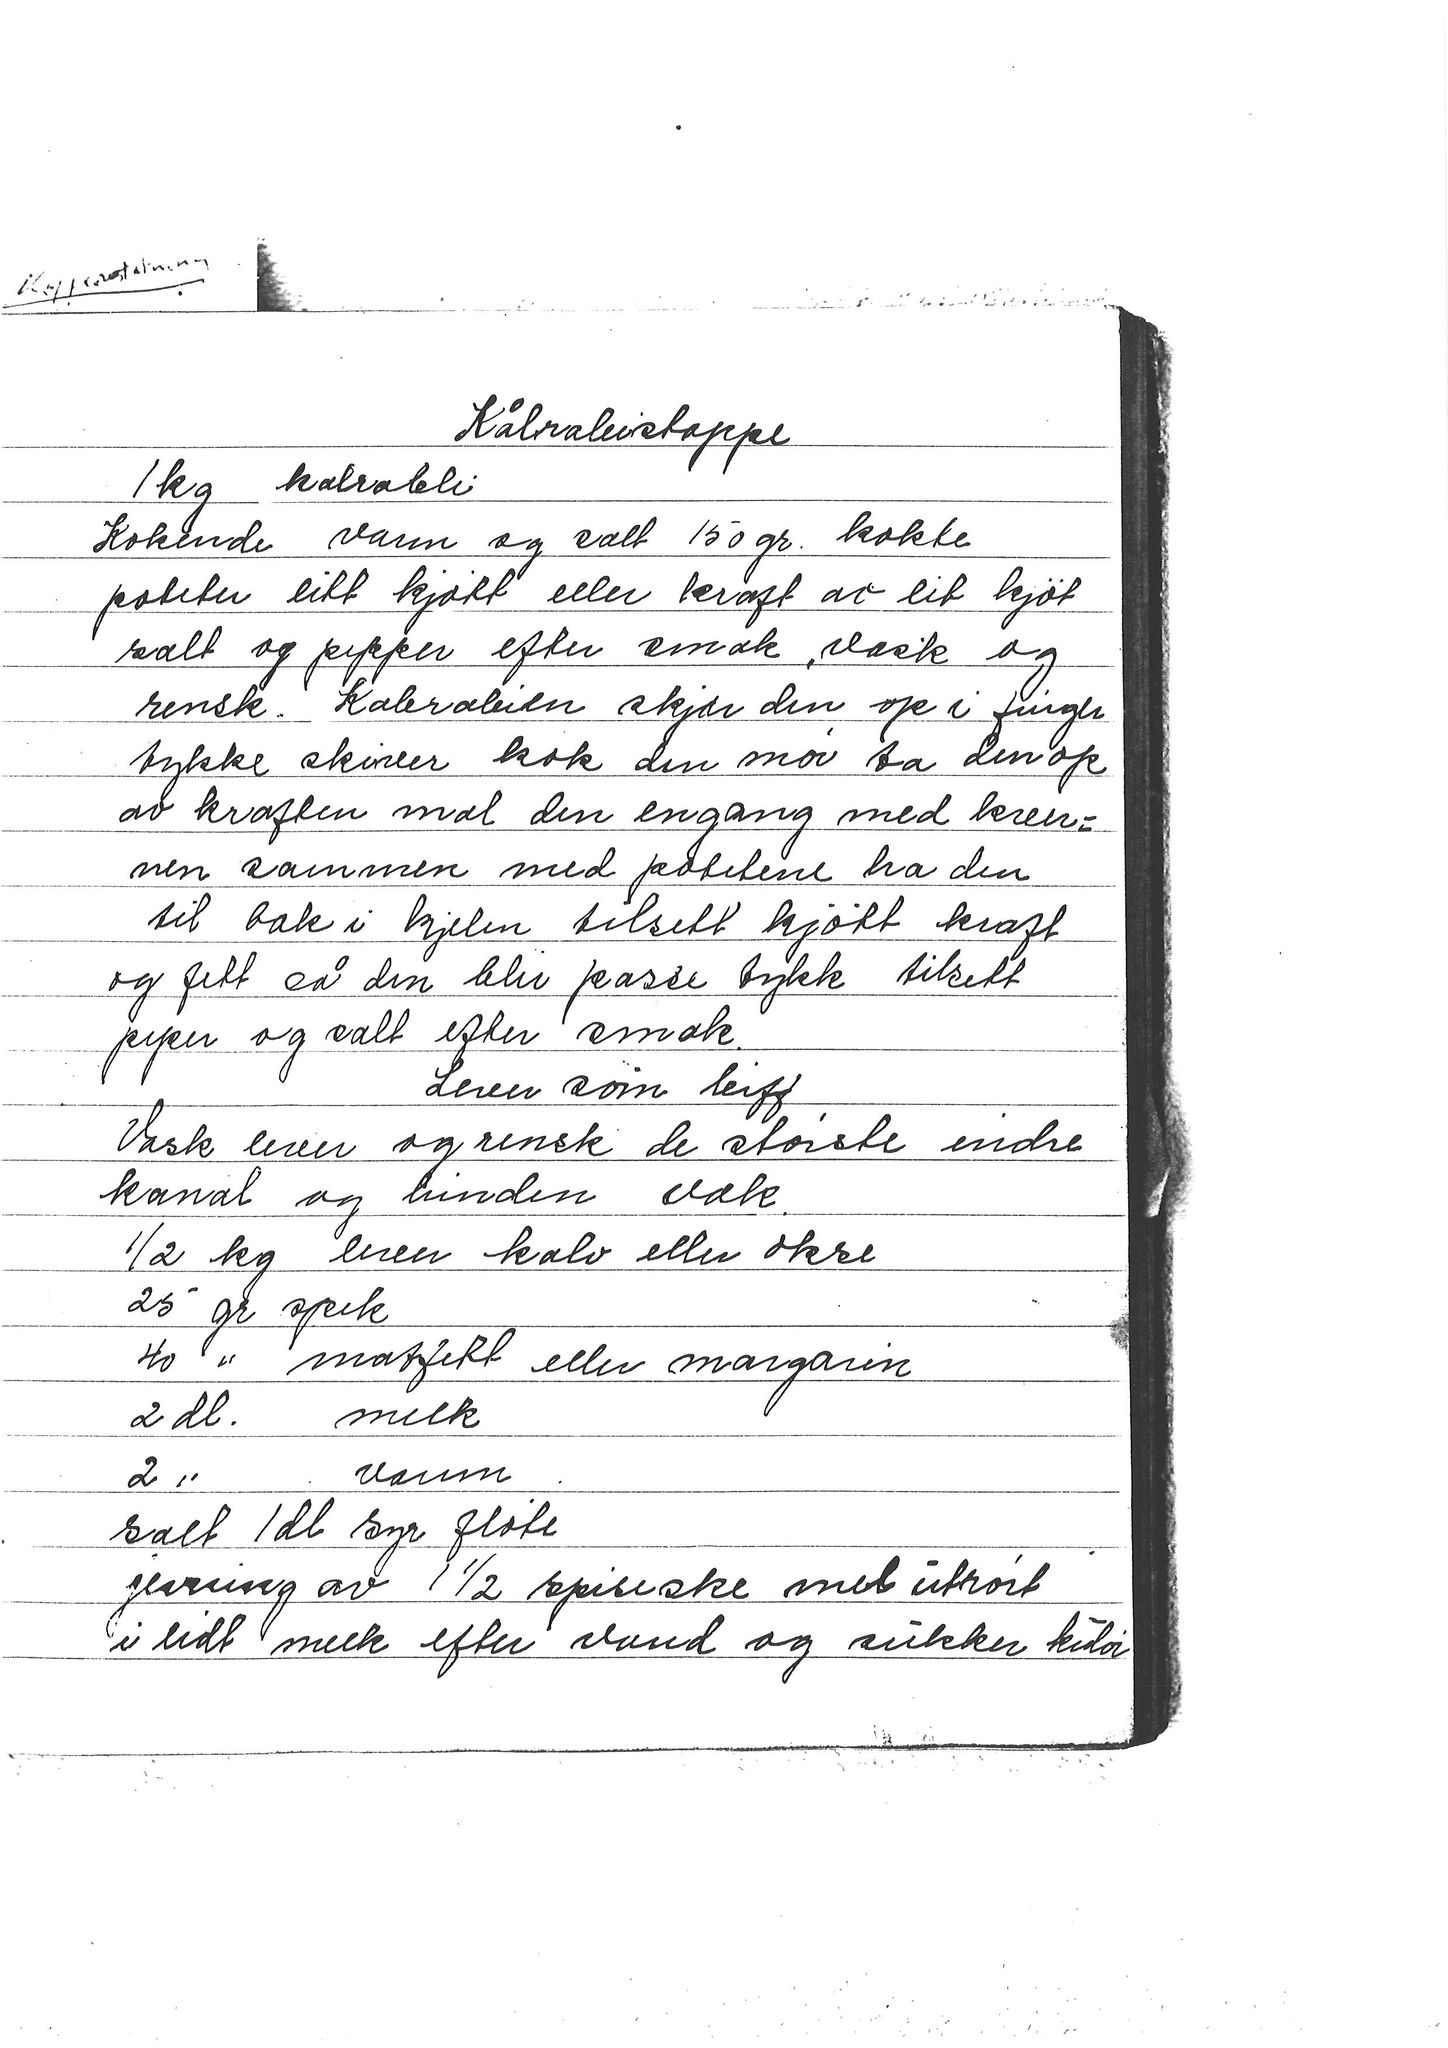 Kålrabistappe
1 kg kalrabbi
Kokende vann og salt 150 gr. kokte
poteter litt kjött eller kraft av lit kjöt
salt og pepper efter smak, vask og
rensk. Kalrabien skjær den op i finger
tykke skiver kok den mör ta den op
av kraften mal den engang med kver=
nen sammen med potetene ha den
til bak i kjelen tilsett kjött kraft
og fett så den blir passe tykk tilsett
peper og salt efter smak.
Lever som biff
Vask lever og rensk de störste indre
kanal og hinden væk.
1/2 kg lever kalv eller okse
25 gr spek
40 " matfett eller margarin
2 dl. melk
2 " vann
salt 1 dl syr flöte
jevning av 1 1/2 spiseske mel utrört
i lidt melk efter vand og sukker kulör